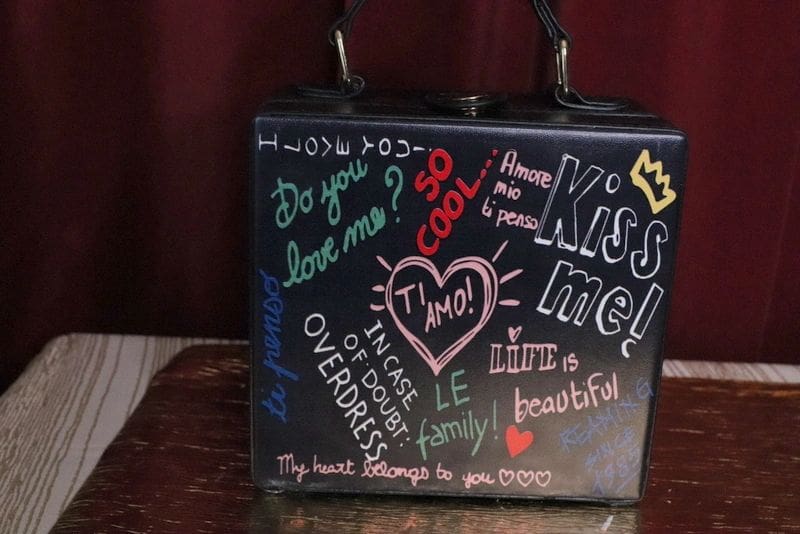 I LOVE YOU!
Do you
love me?
SO
COOL...
Amore
mio
ti penso
Kiss
me!
TI
AMO!
ti penso
IN CASE
OF DOUBT:
OVERDRESS
LIFE IS
beautiful
LE
family!
SINCE
My heart belongs to you